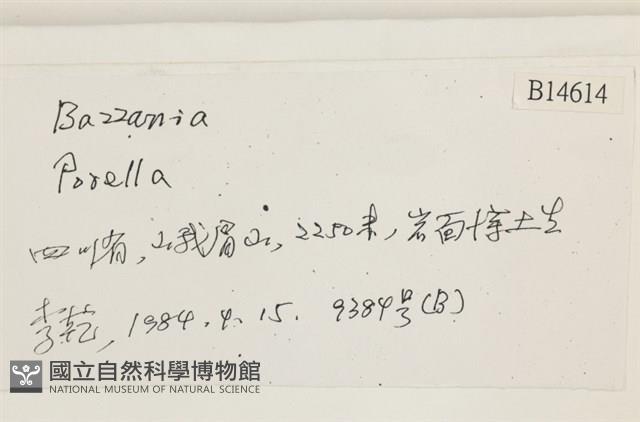 B14614
Bazzania
Porella
四川省, 峨眉山, 2250米, 岩面薄土生
李乾, 1984.4.15. 9384号(B)
國立自然科學博物館
NATIONAL MUSEUM OF NATURAL SCIENCE